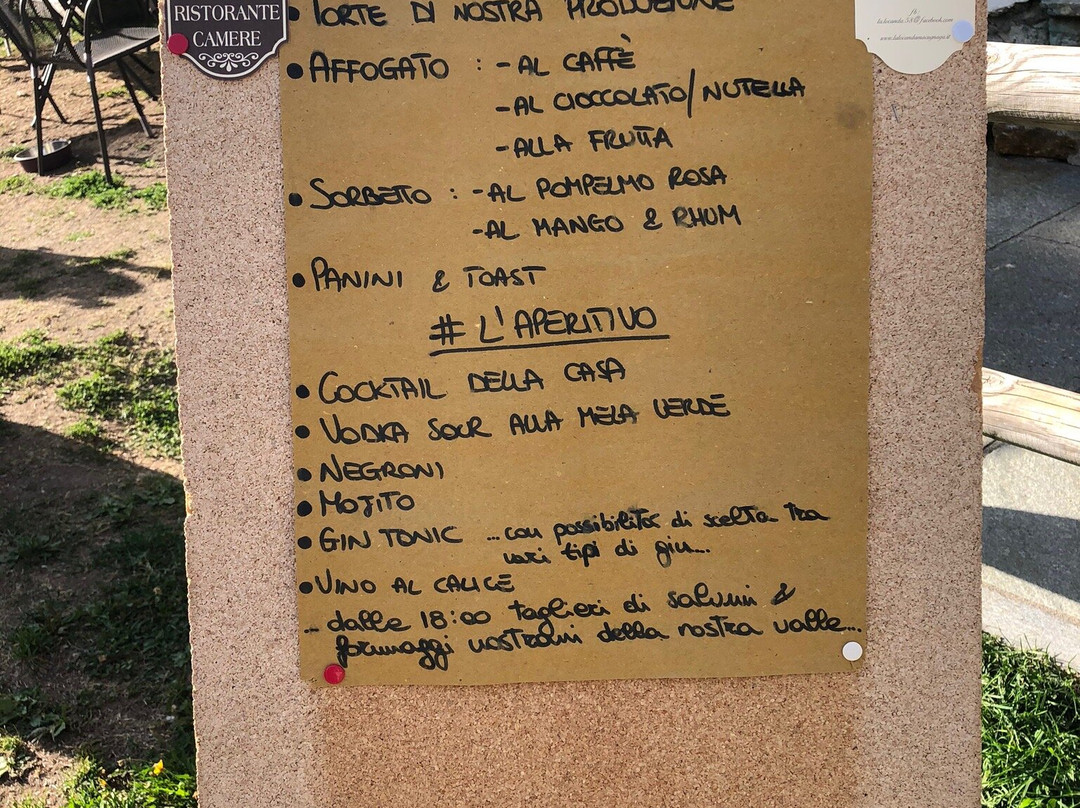 RISTORANTE
CAMERE
• TORTE DI NOSTRA PRODUZIONE
• AFFOGATO : - AL CAFFÈ
- AL CIOCCOLATO/NUTELLA
- ALLA FRUTTA
• SORBETTO : - AL POMPELMO ROSA
- AL MANGO & RHUM
• PANINI & TOAST
# L'APERITIVO
• COCKTAIL DELLA CASA
• VODKA SOUR ALLA MELA VERDE
• NEGRONI
• MOJITO
• GIN TONIC ...con possibilità di scelta tra
vari tipi di gin...
• VINO AL CALICE
... dalle 18:00 taglieri di salumi &
formaggi nostrani della nostra valle...
fb: